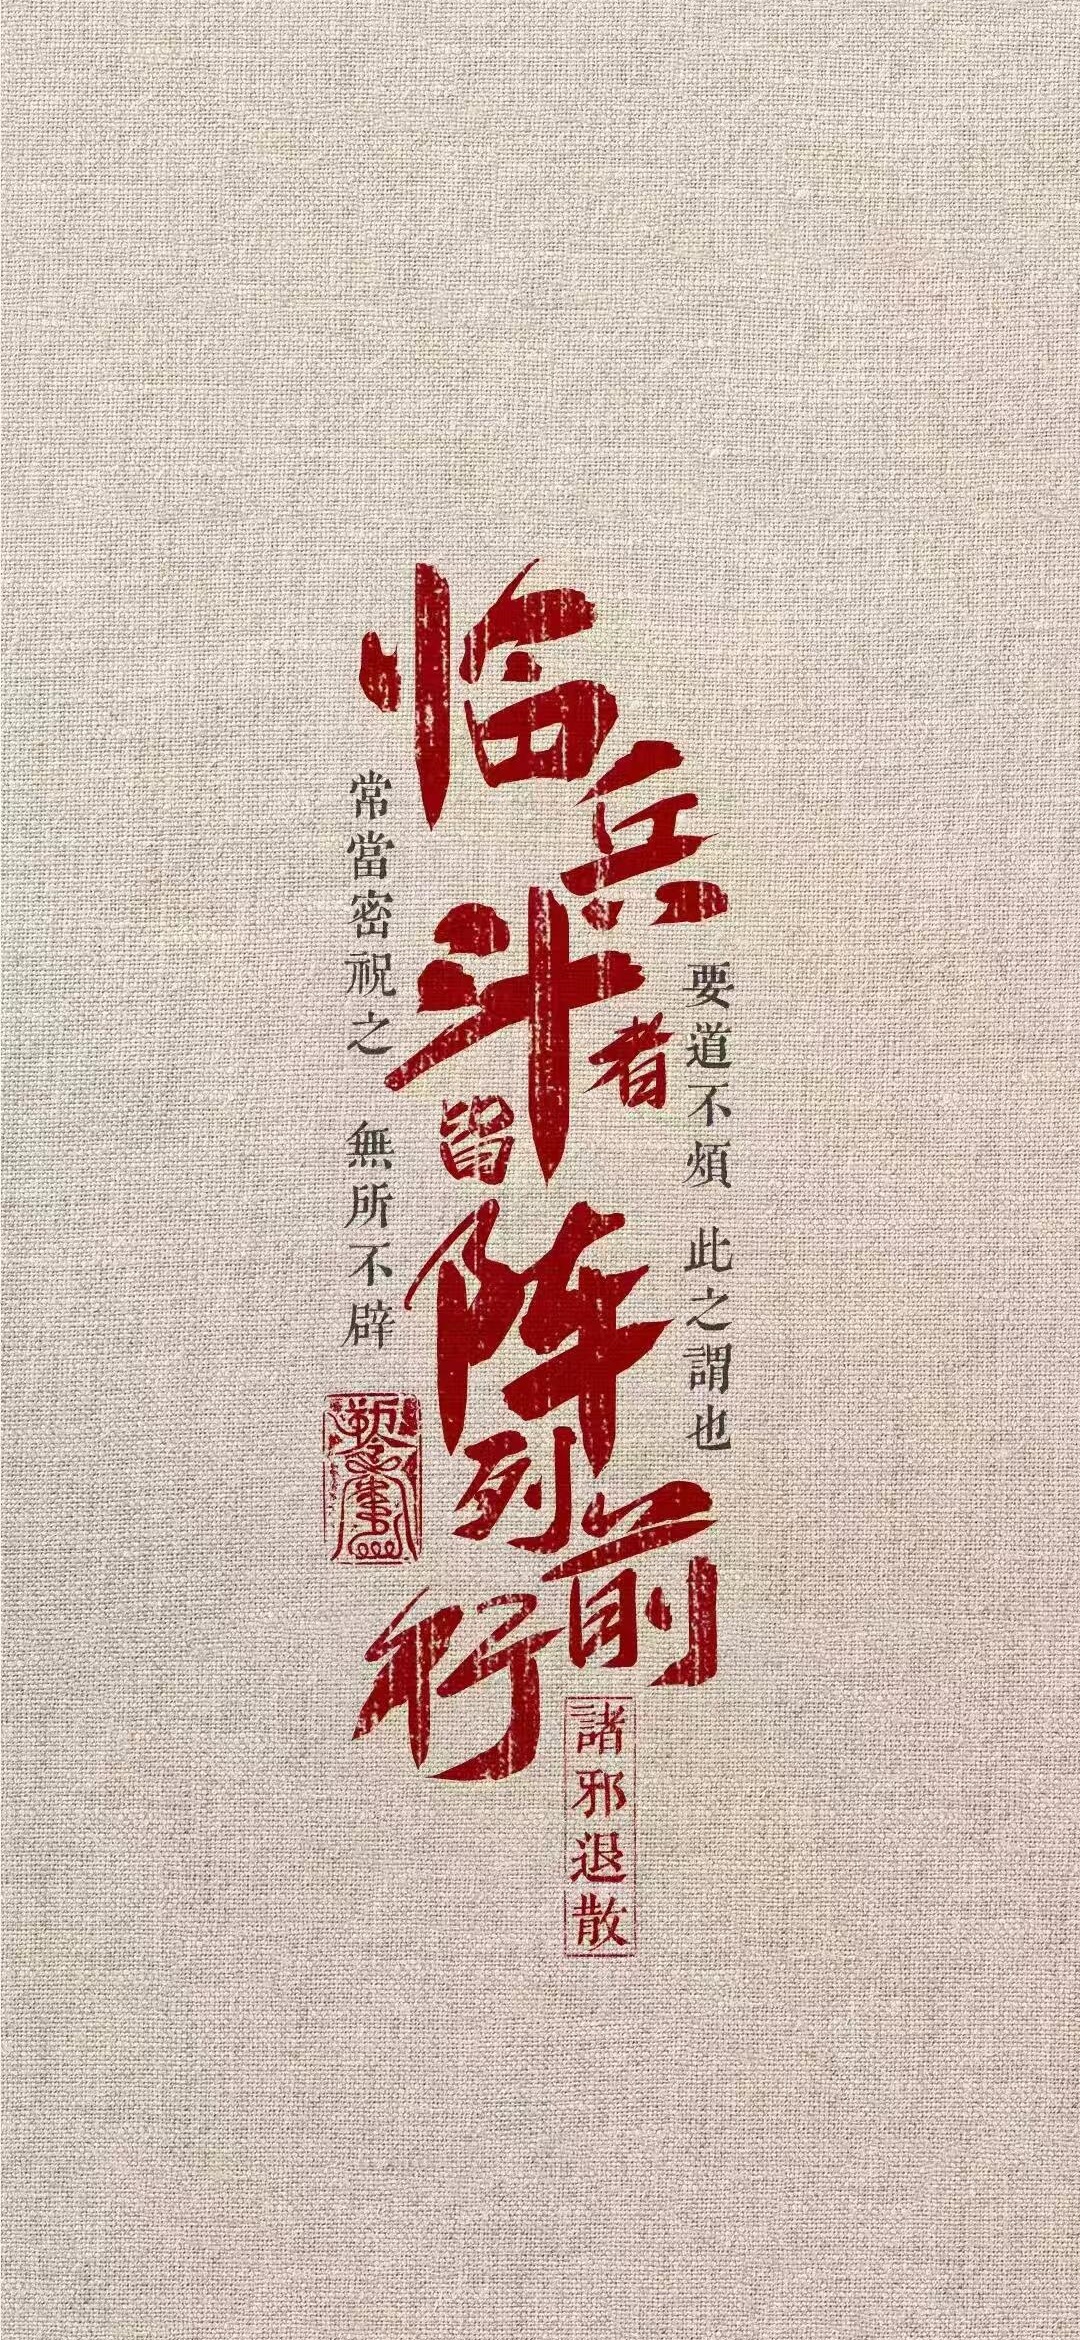 临兵斗者皆阵列前行
常當密祝之 無所不辟
要道不煩 此之謂也
諸邪退散